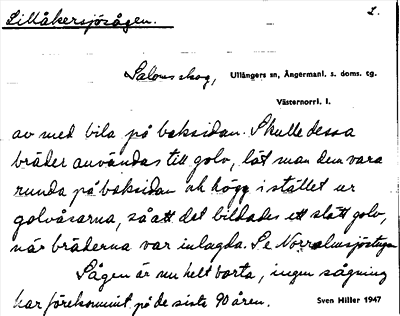 Lillåkersjösågen.
2.
Salomskog, Ullångers sn, Ångermanl. s. doms. tg.
Västernorrl. l.
av med bila på baksidan. Skulle dessa
bräder användas till golv, lät man dem vara
runda på baksidan och högg i stället ur
golvåsarna, så att det bildades ett slätt golv,
när bräderna var inlagda. Se Norrolmsjöstugan
Sågen är nu helt borta, ingen sågning
har förekommit på de sista 90 åren. Sven Hiller 1947